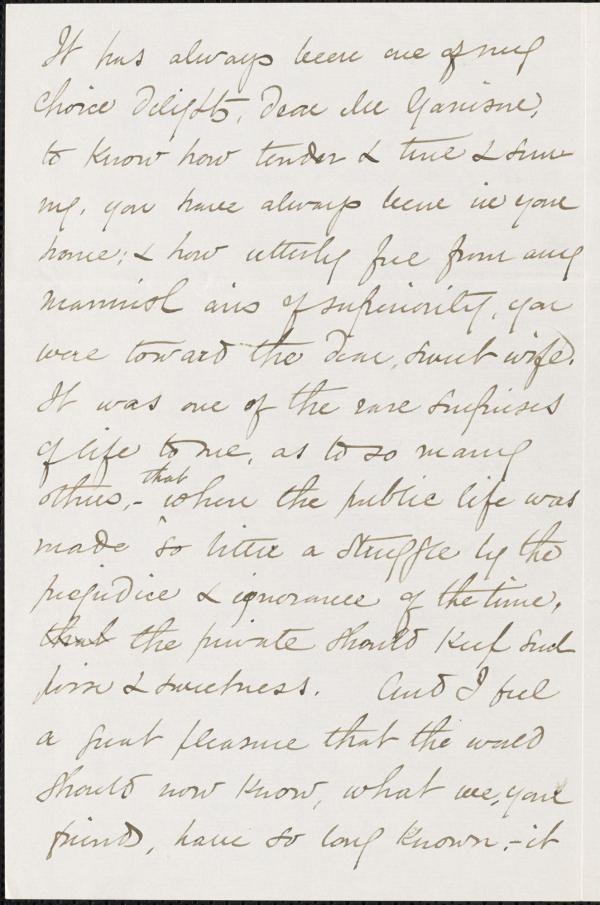 It has always been one of my
choice delights, dear Mr Garrison,
to know how tender & true & sunny
ny, you have always been in your
home; & how utterly free from any
mannish airs of superiority, you
were toward the dear, sweet wife.
It was one of the rare surprises
of life to me, as to so many
others,- that where the public life was
made so bitter a struggle by the
prejudice & ignorance of the time,
that the private should keep such
poise & sweetness. And I feel
a great pleasure that the world
should now know, what we, your
friends, have so long known,-it